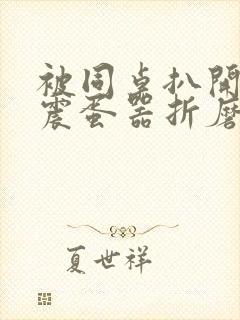 被同桌扒開
震蛋器折磨
夏世祥